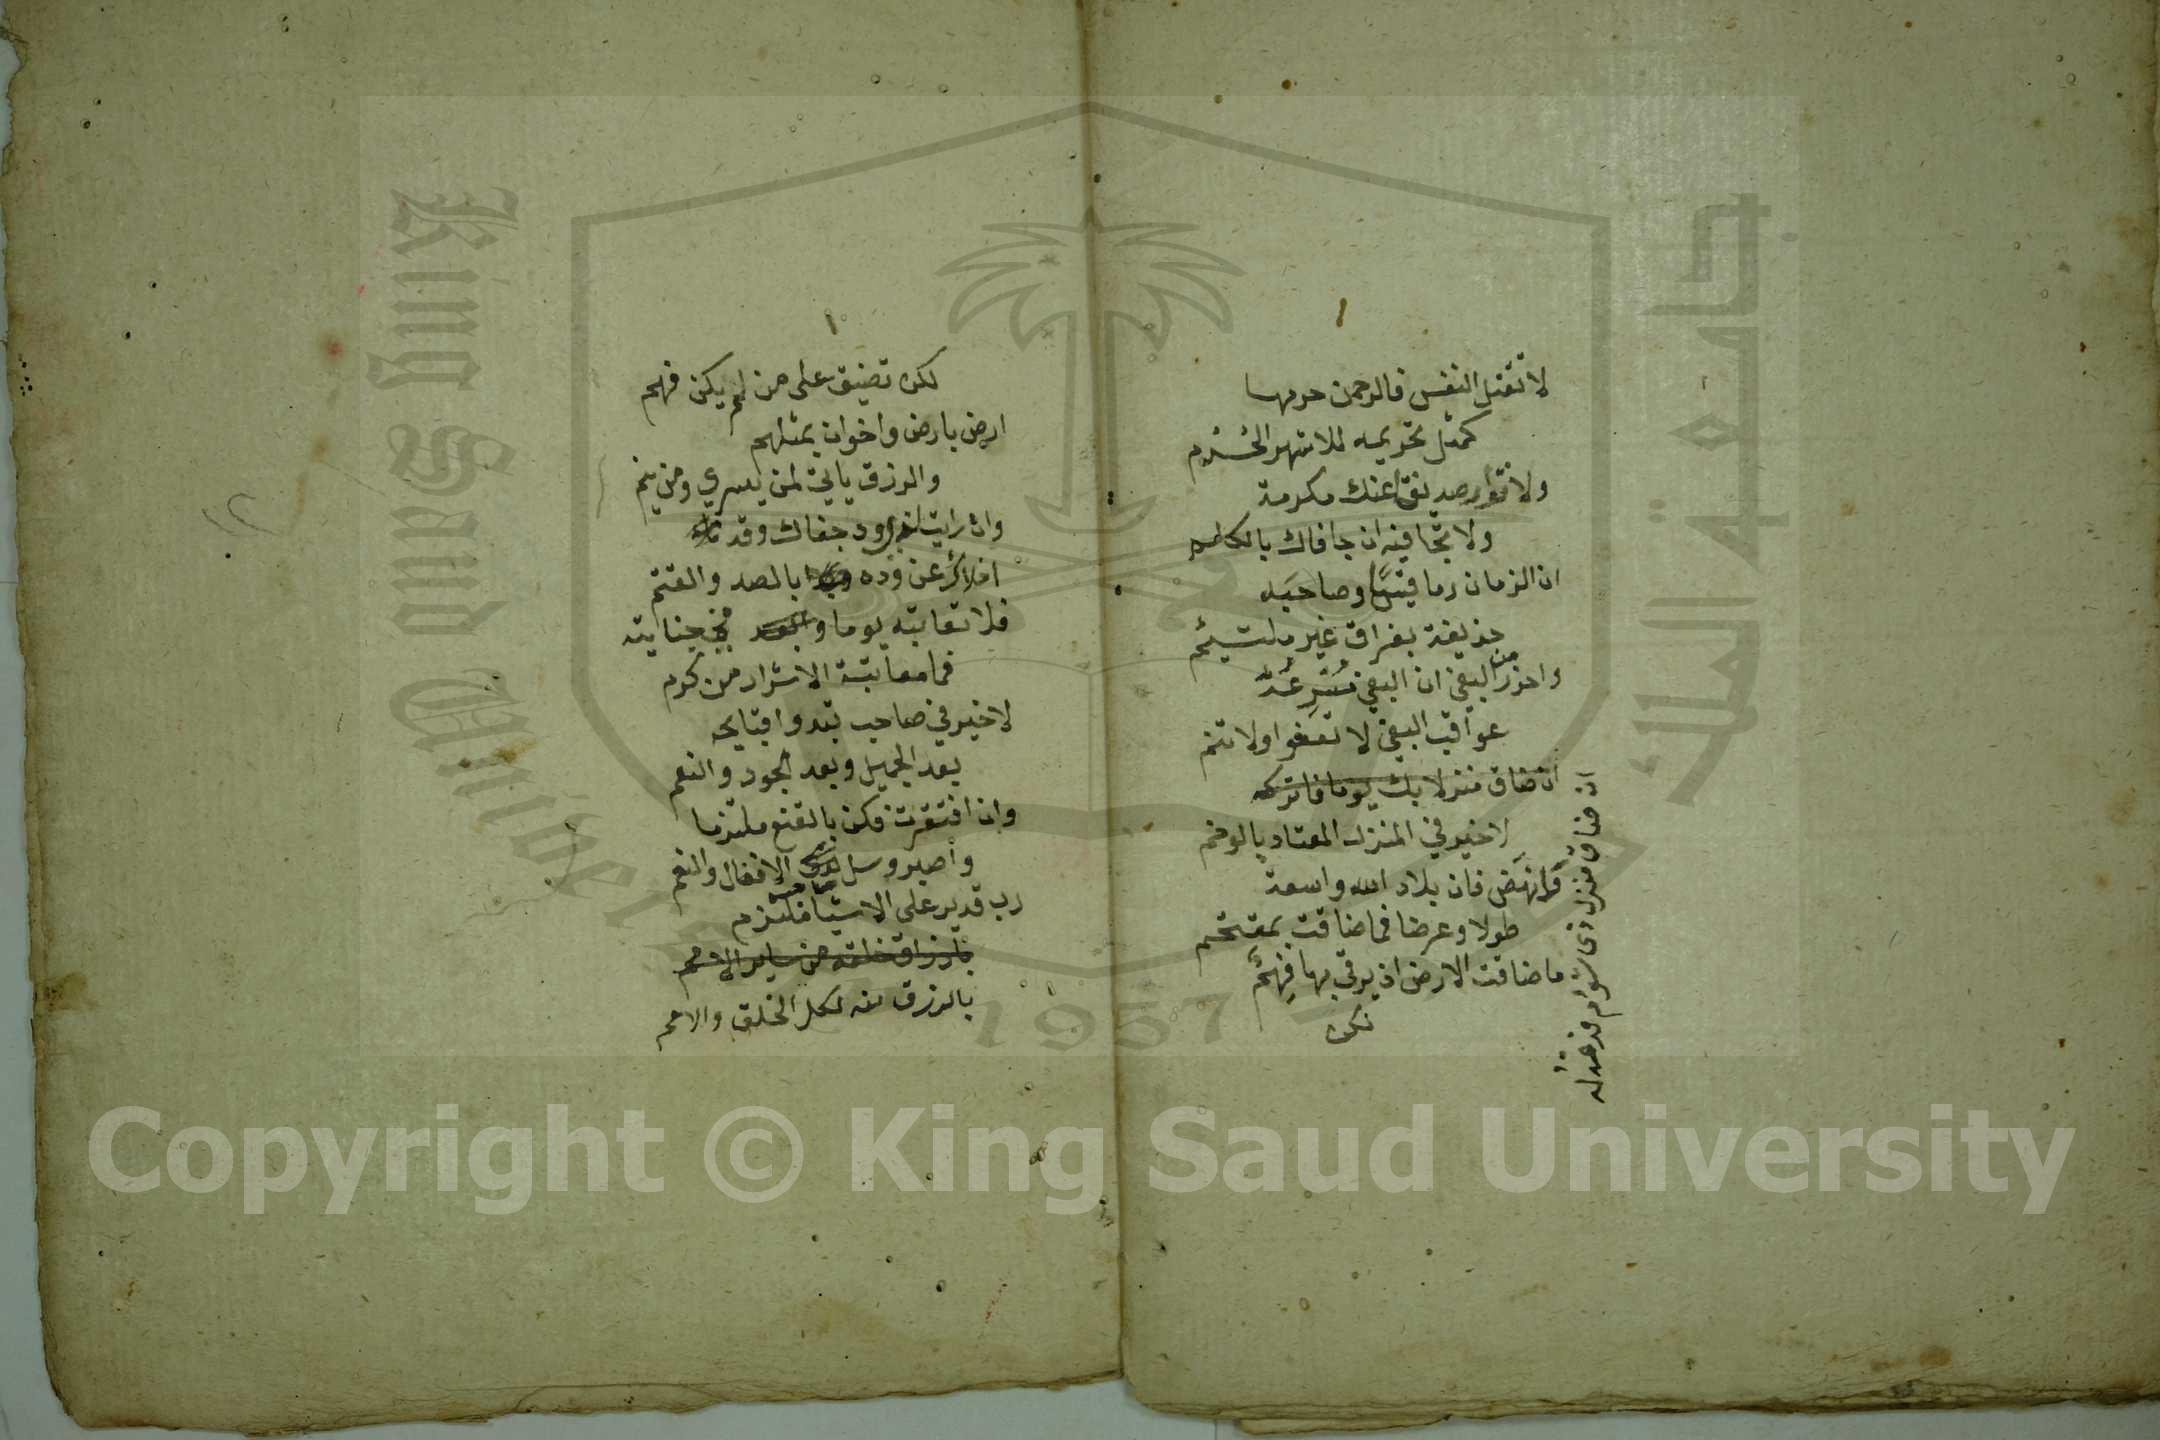 لا تقتل النفس فالرحمن حرمها
كمثل تحريمه للاشهر الحُرُم
ولا صديق عنك مكرمة
ولا تجافيه ان جافاك بالكلم
ان الزمان رما قيسًا وصاحبَه
حذيفة بفراق غير ملتئم
واحذر من البغي ان البغي
عواقب البغي لا تعفوا ولا تنم
ان ضاق منزلا بك يوما فاتركه
لا خير في المنزل المعتاد بالوخم
فانهَض فان بلاد الله واسعة
طولا وعرضا فما ضاقت بمقتحم
ما ضاقت الارض اذ يرقى بها فهِمٌ
لكن
ان ضاق منزل
لكن تضيق على من لم يكن فهم
ارض بارض واخوان بمثلهم
والرزق ياتي لمن يسري ومن ينم
وان رايت ود جفاك وقد
عن وده بالصد
فلا تعاتبه يوما و جنايته
فما معاتبة الاشرار من كرم
لا خير في صاحب تبدوا قبايحه
بعد الجميل وبعد الجود والنعم
وان افتقرت فكن بالقنع ملتزما
واصبر وسل صاحب الافضال والنعم
رب قدير على الاشيا ملتزم
بارزاق خلقه من ساير الامم
بالرزق منه لكل الخلق والامم
١٢
King Saud University
جامعة الملك
1957
Copyright © King Saud University